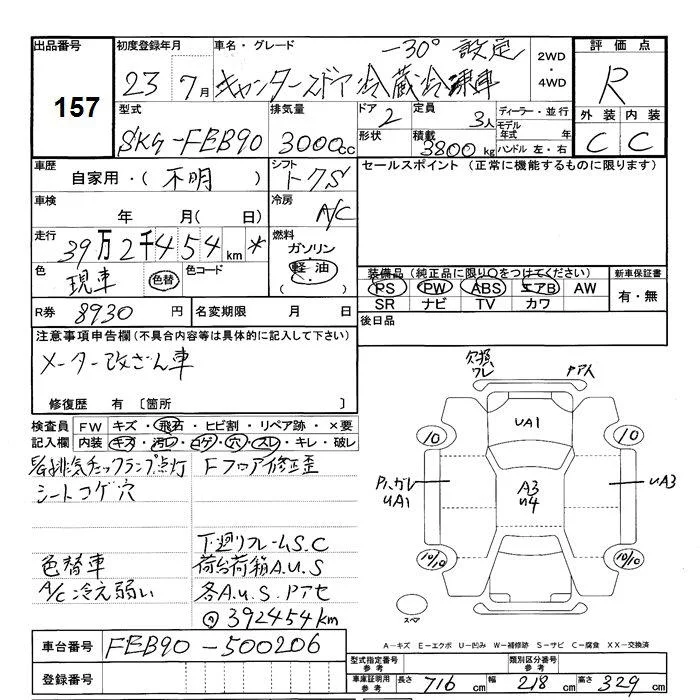 出品番号 初度登録年月 車名・グレード -30°設定 2WD ・ 4WD 評価点
157 23 7月 キャンター 2ドア 冷蔵冷凍車 R
型式 排気量 ドア 定員 ディーラー・並行 外装 内装
SKG-FEB90 3000cc 2 3人 モデル年式 年 C C
形状 積載 3800kg ハンドル 左・右
車歴 シフト セールスポイント (正常に機能するものに限ります)
自家用・(不明) ト7S
車検 冷房
年 月( 日) A/C
走行 燃料
39万2千454km * ガソリン
色 色替 色コード 軽油
現車 ・( )
装備品(純正品に限り○をつけてください) 新車保証書
PS PW ABS エアB AW 有・無
SR ナビ TV カワ
R券 8930円 名変期限 月 日 後日品
注意事項申告欄(不具合内容等は具体的に記入して下さい)
メーター改ざん車
修復歴 有 〔箇所 〕
検査員 FW キズ・飛石・ヒビ割・リペア跡・×要
記入欄 内装 キズ・汚レ・コゲ・穴・スレ・キレ・破レ
排気チェックランプ点灯 Fフロア修正歪
シートコゲ穴
下廻りフレームS.C
色替車 荷台荷箱A.U.S
A/C冷え弱い 各A.U.S.PTセ
392454km
ワレ
UA1
10 10
UA1 A3 U4 UA3
10/10 10/10
スペア
A－キズ E－エクボ U－凹み W－補修跡 S－サビ C－腐食 XX－交換済
車台番号 FEB90-500206
登録番号
型式指定番号 参考 類別区分番号 参考
車庫証明用 参考 長さ 716cm 幅 218cm 高さ 329cm